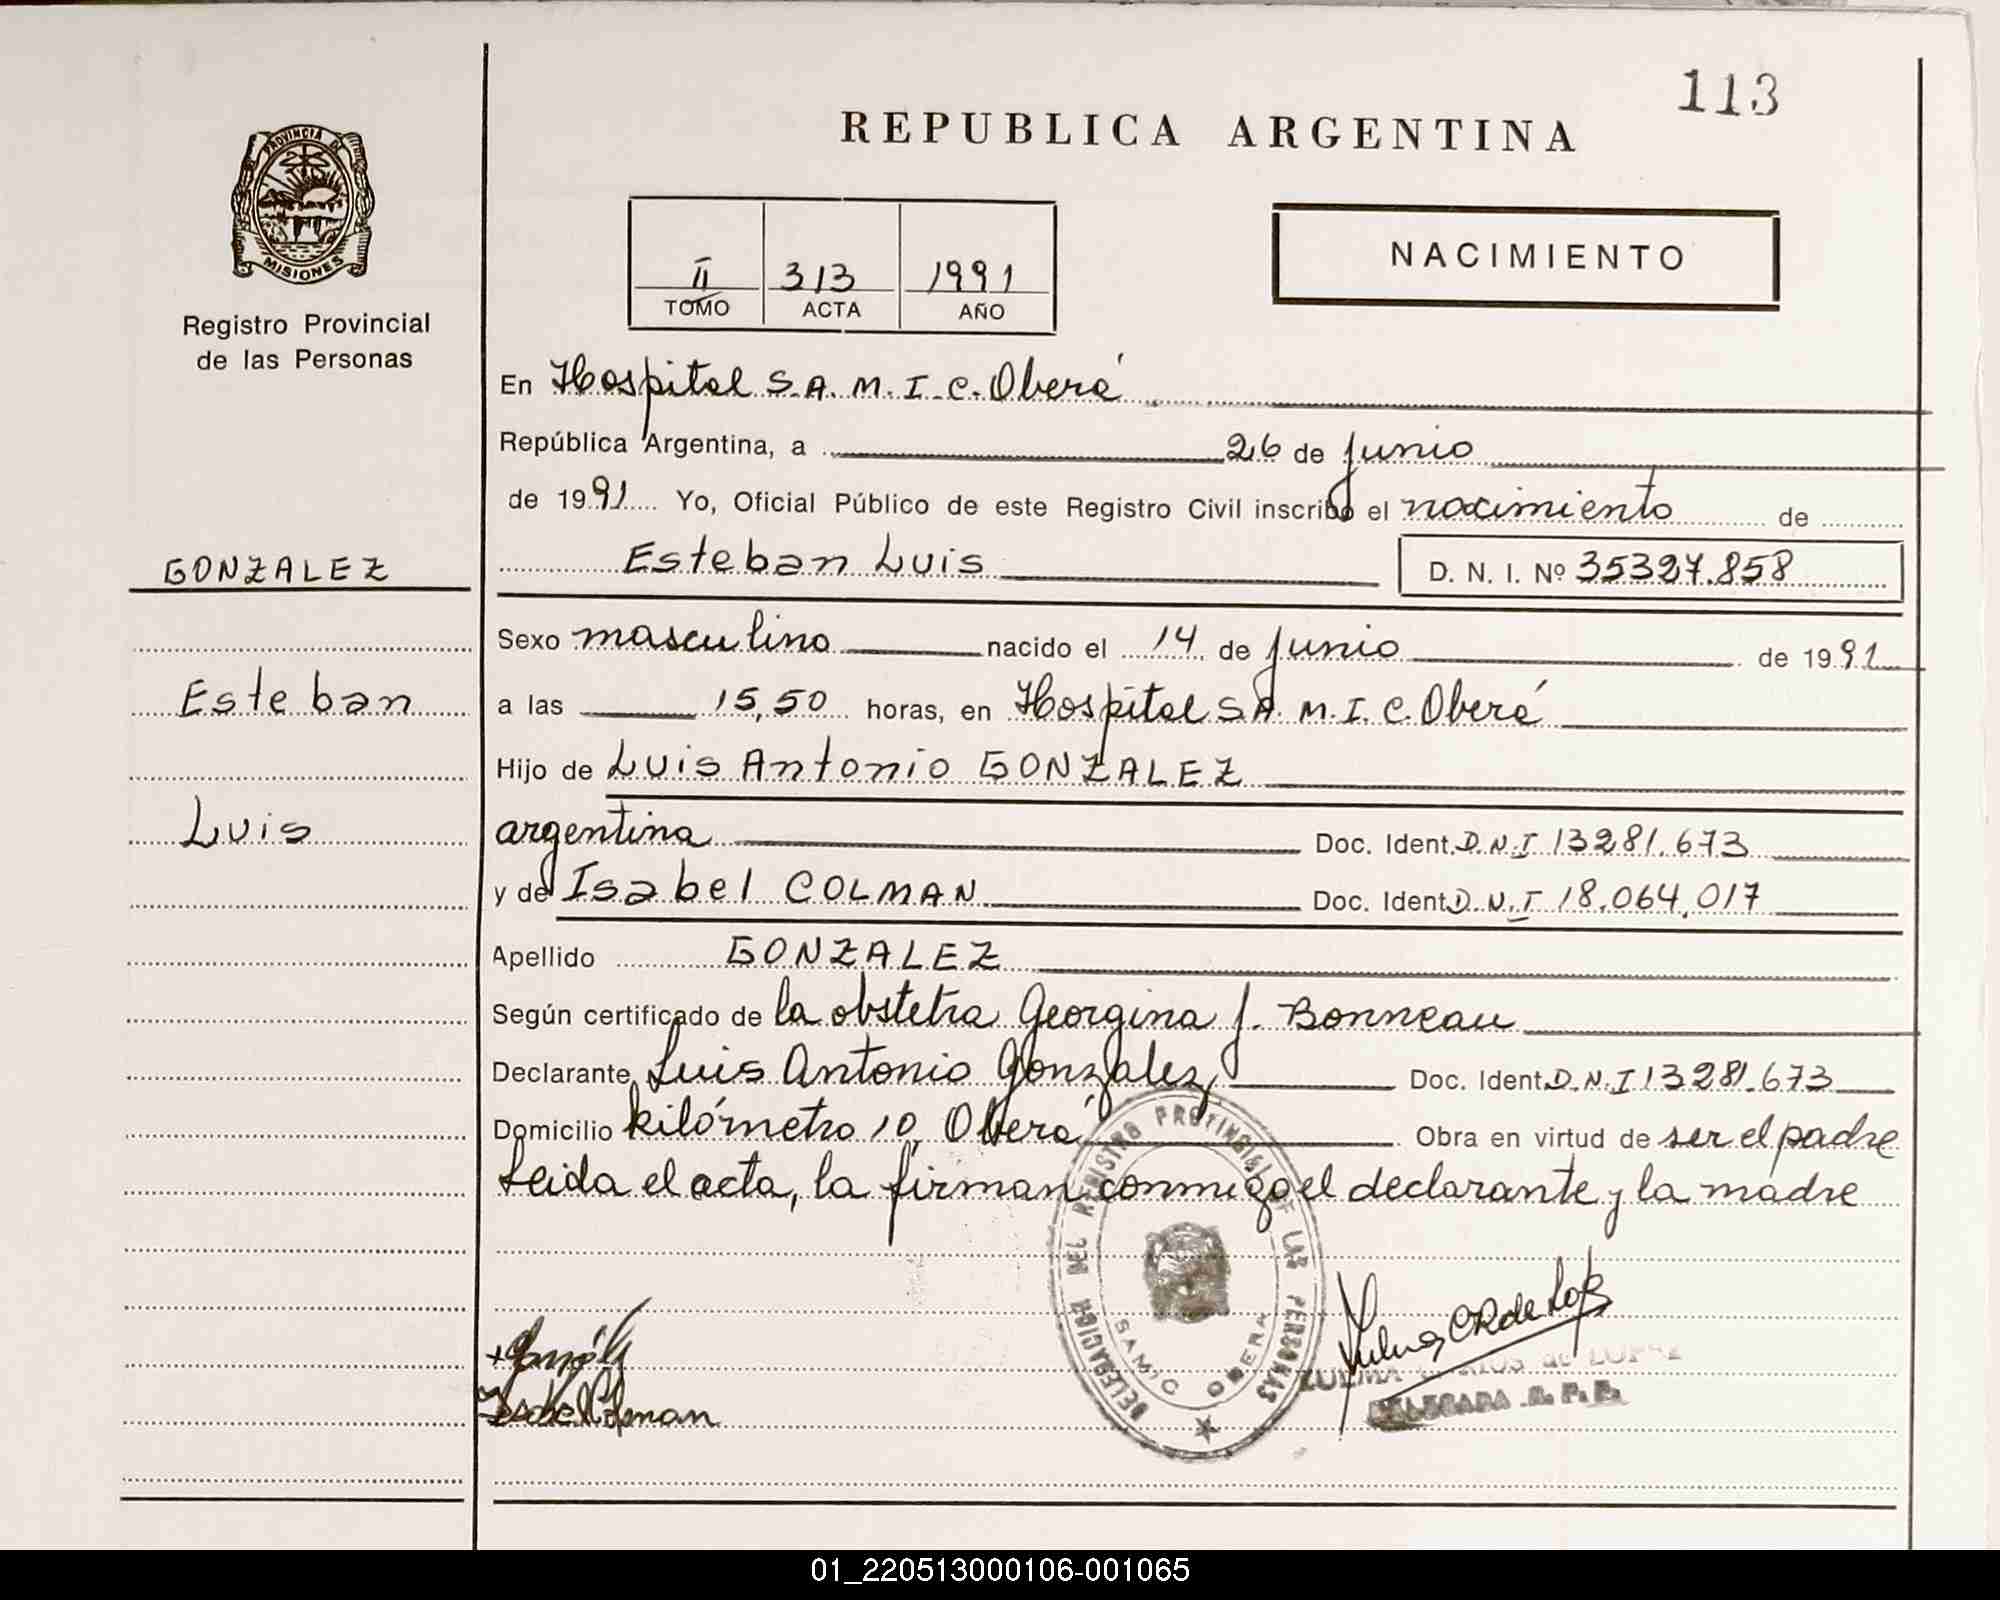 113
REPUBLICA ARGENTINA
PROVINCIA DE
MISIONES
Registro Provincial
de las Personas
II 313 1991
TOMO ACTA AÑO
NACIMIENTO
En Hospital S.A.M.I.C. Oberá
República Argentina, a 26 de junio
de 1991 Yo, Oficial Público de este Registro Civil inscribo el nacimiento de
GONZALEZ
Esteban Luis D. N. I. Nº 35327.858
Sexo masculino nacido el 14 de junio de 1991
Esteban
a las 15,50 horas, en Hospital S.A.M.I.C. Oberá
Hijo de Luis Antonio GONZALEZ
Luis
argentina Doc. Ident. D.N.I 13281.673
y de Isabel COLMAN Doc. Ident D.N.I 18.064.017
Apellido GONZALEZ
Según certificado de la obstetra Georgina J. Bonneau
Declarante Luis Antonio Gonzalez Doc. Ident D.N.I 13281.673
Domicilio kilómetro 10, Oberá Obra en virtud de ser el padre
Leida el acta, la firman conmigo el declarante y la madre
DELEGACION DEL REGISTRO PROVINCIAL DE LAS PERSONAS
SAMIC OBERA
Isabel Colman
ZULMA de LOPEZ
DELEGADA R. P. P.
01_220513000106-001065